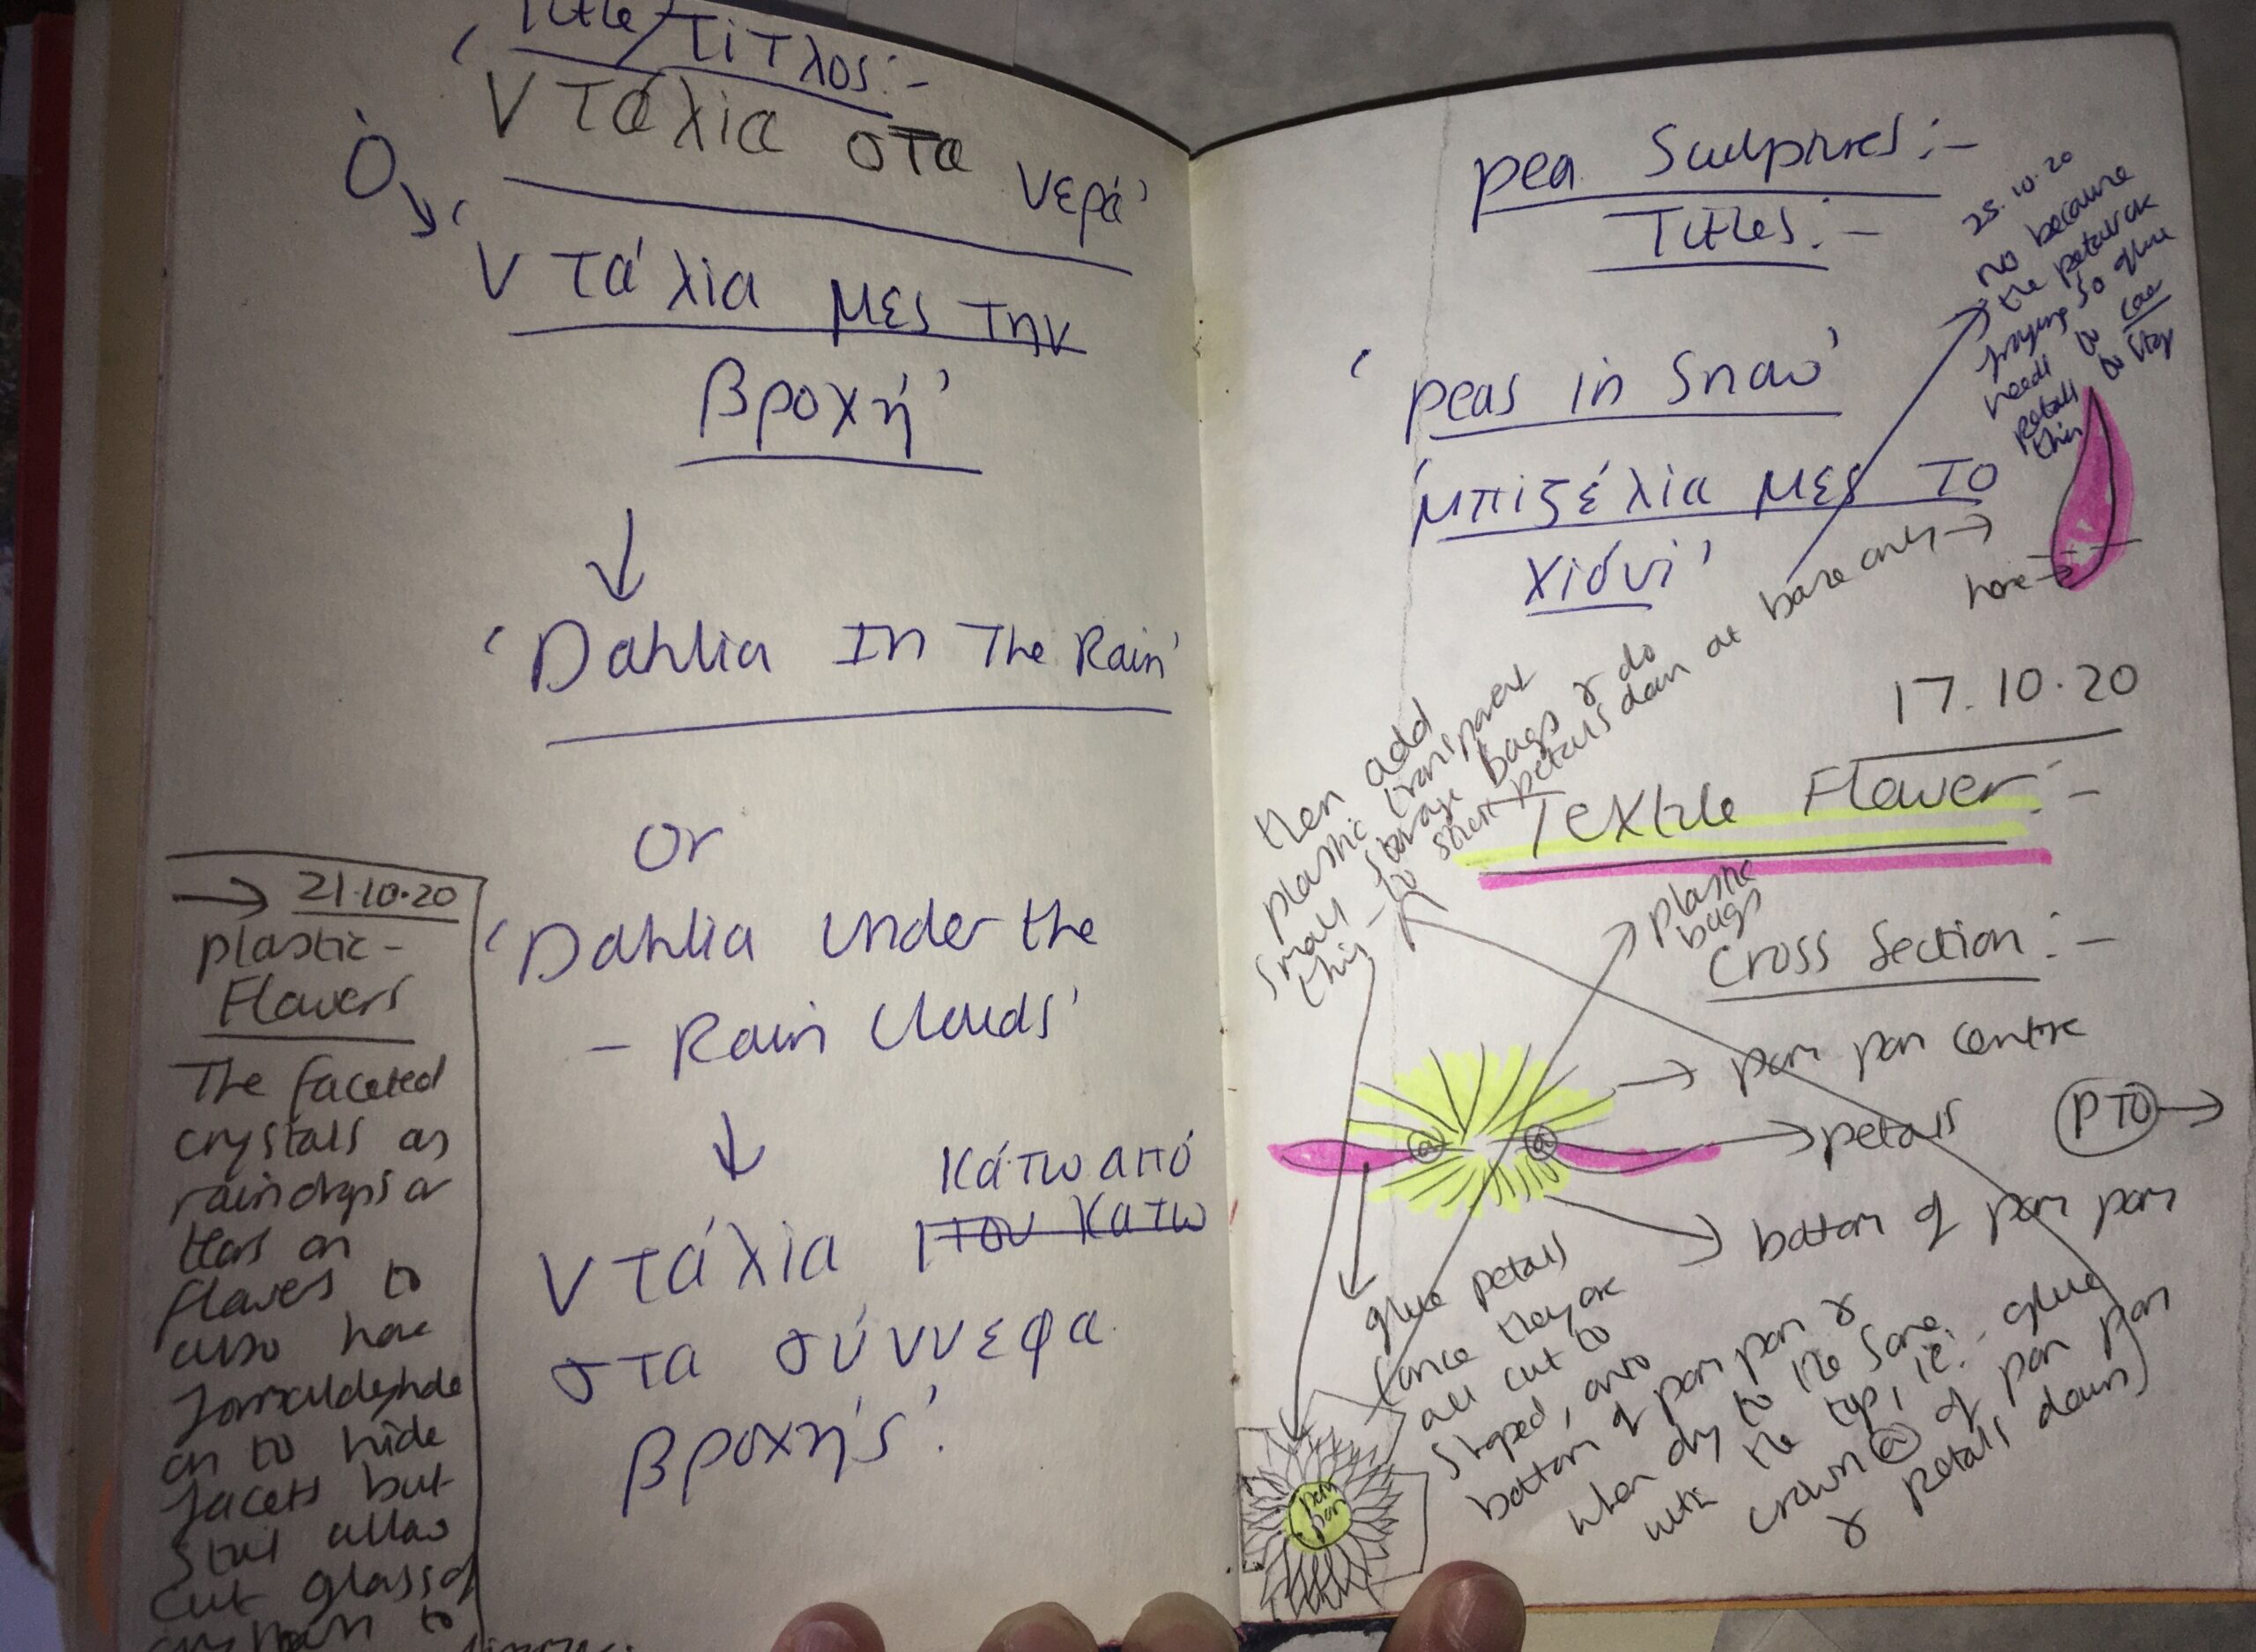 'Title/Τίτλος:-
Ντάλια στα
νερά'
Ο →
'Ντάλια μες την
βροχή'
↓
'Dahlia In The Rain'
or
'Dahlia under the
- Rain Clouds'
↓
Κάτω από
Ντάλια ~~του κατω~~
στα σύννεφα
βροχής'.
→ 21.10.20
Plastic -
Flowers
The faceted
crystals as
raindrops or
tears on
flowers to
also have
formaldehyde
on to hide
facets but
still allow
cut glass of
to
pea Sculptures:-
Titles:-
'peas in Snow'
'μπιζέλια μες το
χιόνι'
25.10.20
no because
the petals are
fraying so glue
needs to
petals to stop
this
here →
then add
plastic transparent
small storage bags & do
this - to short petals down at base only →
17.10.20
Textile Flower:-
plastic
bags
Cross Section:-
→ pom pom centre
→ petals
PTO →
@ @
→ bottom of pom pom
glue petals
(once they are
all cut to
shaped, onto
bottom of pom pom &
when dry to the same
with the top, ie:- glue
crown @ of pom pom
& petals down)
pom
pom